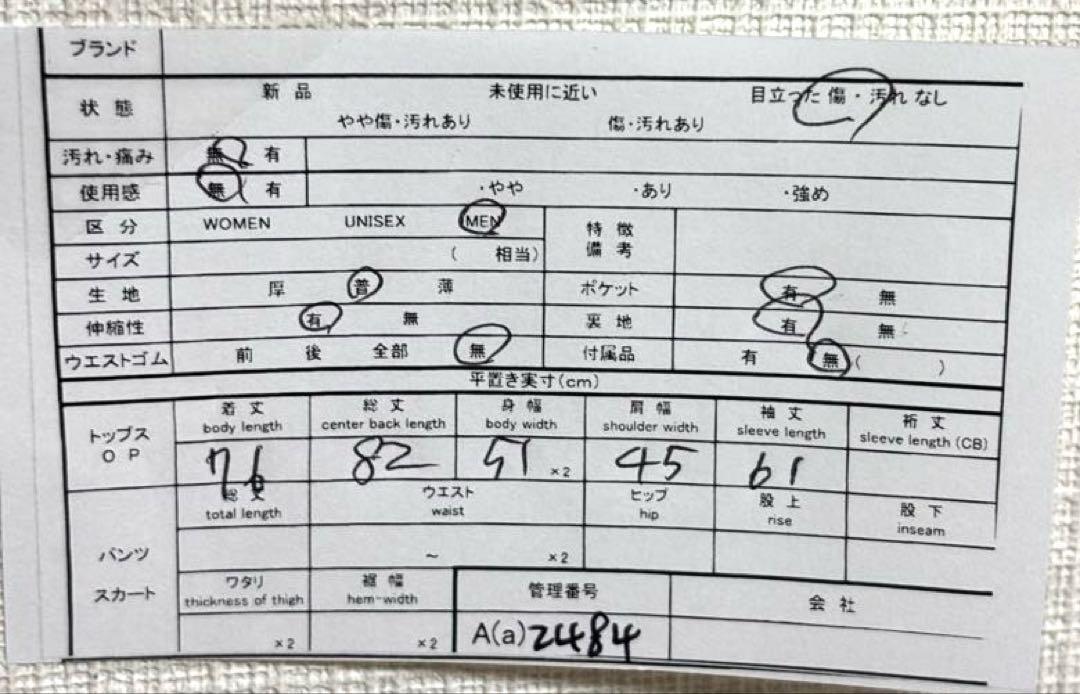 ブランド
状態 新品 未使用に近い 目立った傷・汚れなし
やや傷・汚れあり 傷・汚れあり
汚れ・痛み 無 有
使用感 無 有 ・やや ・あり ・強め
区分 WOMEN UNISEX MEN 特徴
備考
サイズ ( 相当)
生地 厚 普 薄 ポケット 有 無
伸縮性 有 無 裏地 有 無
ウエストゴム 前 後 全部 無 付属品 有 無 ( )
平置き実寸(cm)
トップス
OP
着丈 総丈 身幅 肩幅 袖丈 裄丈
body length center back length body width shoulder width sleeve length sleeve length (CB)
76 82 51 ×2 45 61
総丈 ウエスト ヒップ 股上 股下
total length waist hip rise inseam
パンツ ～ ×2
スカート
ワタリ 裾幅 管理番号 会社
thickness of thigh hem-width
×2 ×2 A(a) 2484